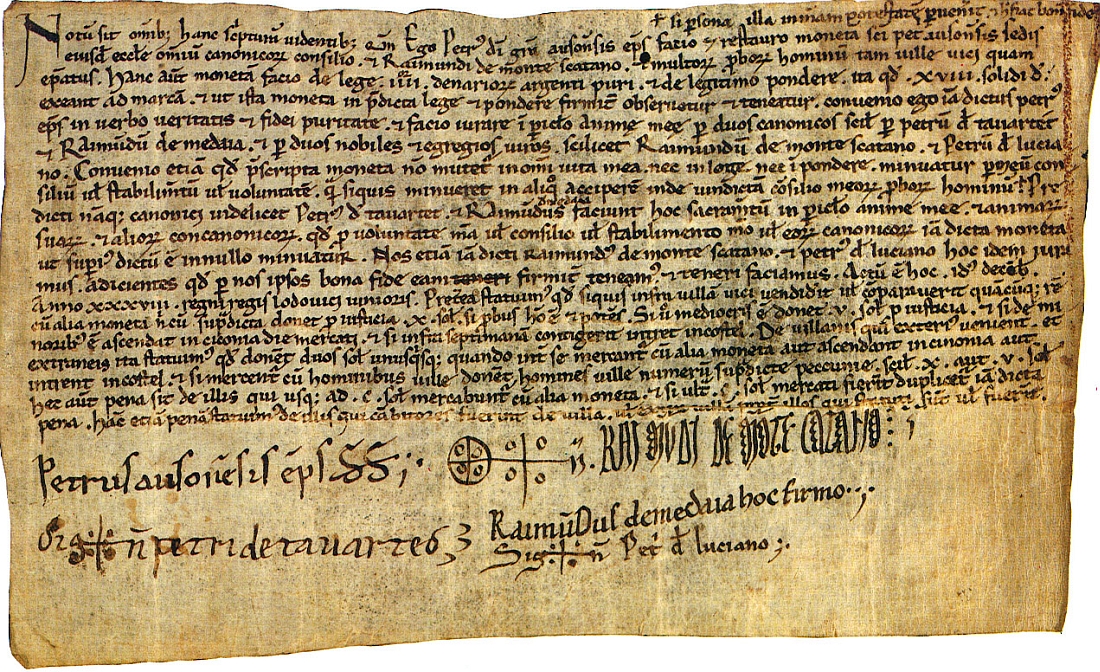 ✝ si persona illa in manum potestatem pervenit
Notū sit omnib; hanc scpturam videntib; Ego Petrˀ di grā ausonensis eps facio & restauro moneta sci petri ausonensis sedis
eiusd eccle omniū canonicoꝝ consilio. & Raimundi de monte scatano. & multorꝝ ꝓborꝝ hominū tam ville vici quam
epatus. Hanc aūt moneta facio de lege. iiii. denarioꝝ argenti puri. & de legitimo pondere. ita qd. xviii. solidi d
exeant ad marcā. & ut ista moneta in p̄dicta lege & pondere firmit observetur & teneatur. convenio ego iā dictus petrˀ
eps in verbo veritatis & fidei puritate. & facio iurare ī piclo anime mee p duos canonicos scil p petrū d tavartet
& Raimūdū de medaia. & p duos nobiles & egregios viros. scilicet Raimundū de monte scatano. & Petrū d lucia
no. Convenio etiā qd p̄scripta moneta nō mutet in om̄i vita mea. nec in lege. nec ī pondere. minuatur p meū con
siliū ul stabilimtu ul voluntatē. qd siquis minueret in aliqo acciperē inde vindictā cōsilio meorꝝ ꝓborꝝ hominū. Pre
dicti naq; canonici videlicet Petrˀ d tavartet. & Raimūdus de medaia faciunt hoc sacramtū in piclo anime mee. & animaꝝ
suaꝝ. & alioꝝ concanonicoꝝ. qd p voluntate mā ul consilio ul stabilimento mo ul eorꝝ canonicoꝝ iā dicta moneta
ut superˀ dictū ē in nullo minuatur. Nos etiā iā dicti Raimundˀ de monte scatano. & petrˀ d luciano hoc idem iura
mus. adicientes qd p nos ipsos bona fide eam teneri firmit teneamˀ. & teneri faciamus. Actū ē hoc. idˀ decēb.
Anno xxxxviii. regni regis lodovici iunioris. Preterea statuimˀ qd siquis infra villā vici vendidit ul cōparaverit quācūq; rē
cū alia moneta n cū supdicta donet p iusticia. x. sol. si pbus ho ē & potēs. Si ū mediocris ē donet. v. sol. p iusticia. & si de mi
noribˀ ē ascendat in ciconia die mercati. & si infra septimanā contigerit intret in costel. De villanis qui exteriˀ venient. et
extraneis ita statuimˀ qd donet duos sol unusqsq; quando int se mercant cū alia moneta aut ascendant in cinonia aut
intrent in costel. & si mercent cū hominibus ville donēt homines ville numerū supdicte peccunie. scil. x. aut. v. sol
hec aūt pena sit de illis qui usq; ad. c. sol mercabunt cū alia moneta. & si ult. c. sol mercati fierit duplicet iā dicta
pena. hāc etiā penā statuimˀ de illis qui cābitores fuerint de villa. sunt ul fuerit.
Petrus ausonēsis eps SS;. n. RAIMUNDI DE MONTE CATANO
Sig✝n petri de tavartes; Raimūdus de medaia hoc firmo.;.
Sig✝n Pet d luciano;.